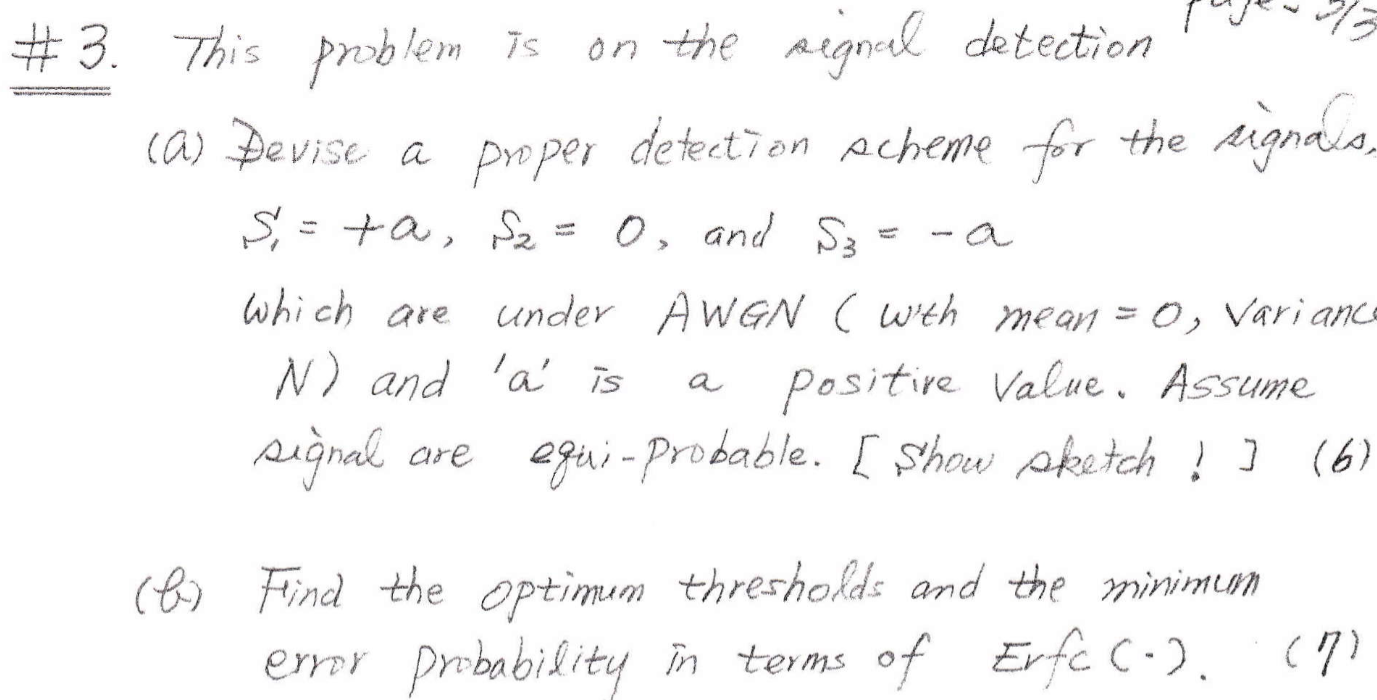 Page - 3/3
#3. This problem is on the signal detection
(a) Devise a proper detection scheme for the signals,
S₁ = +a, S₂ = 0, and S₃ = -a
which are under AWGN ( with mean = 0, Variance
N) and 'a' is a positive value. Assume
signal are equi-probable. [ Show sketch ! ] (6)
(b) Find the optimum thresholds and the minimum
error probability in terms of Erfc (·). (7)